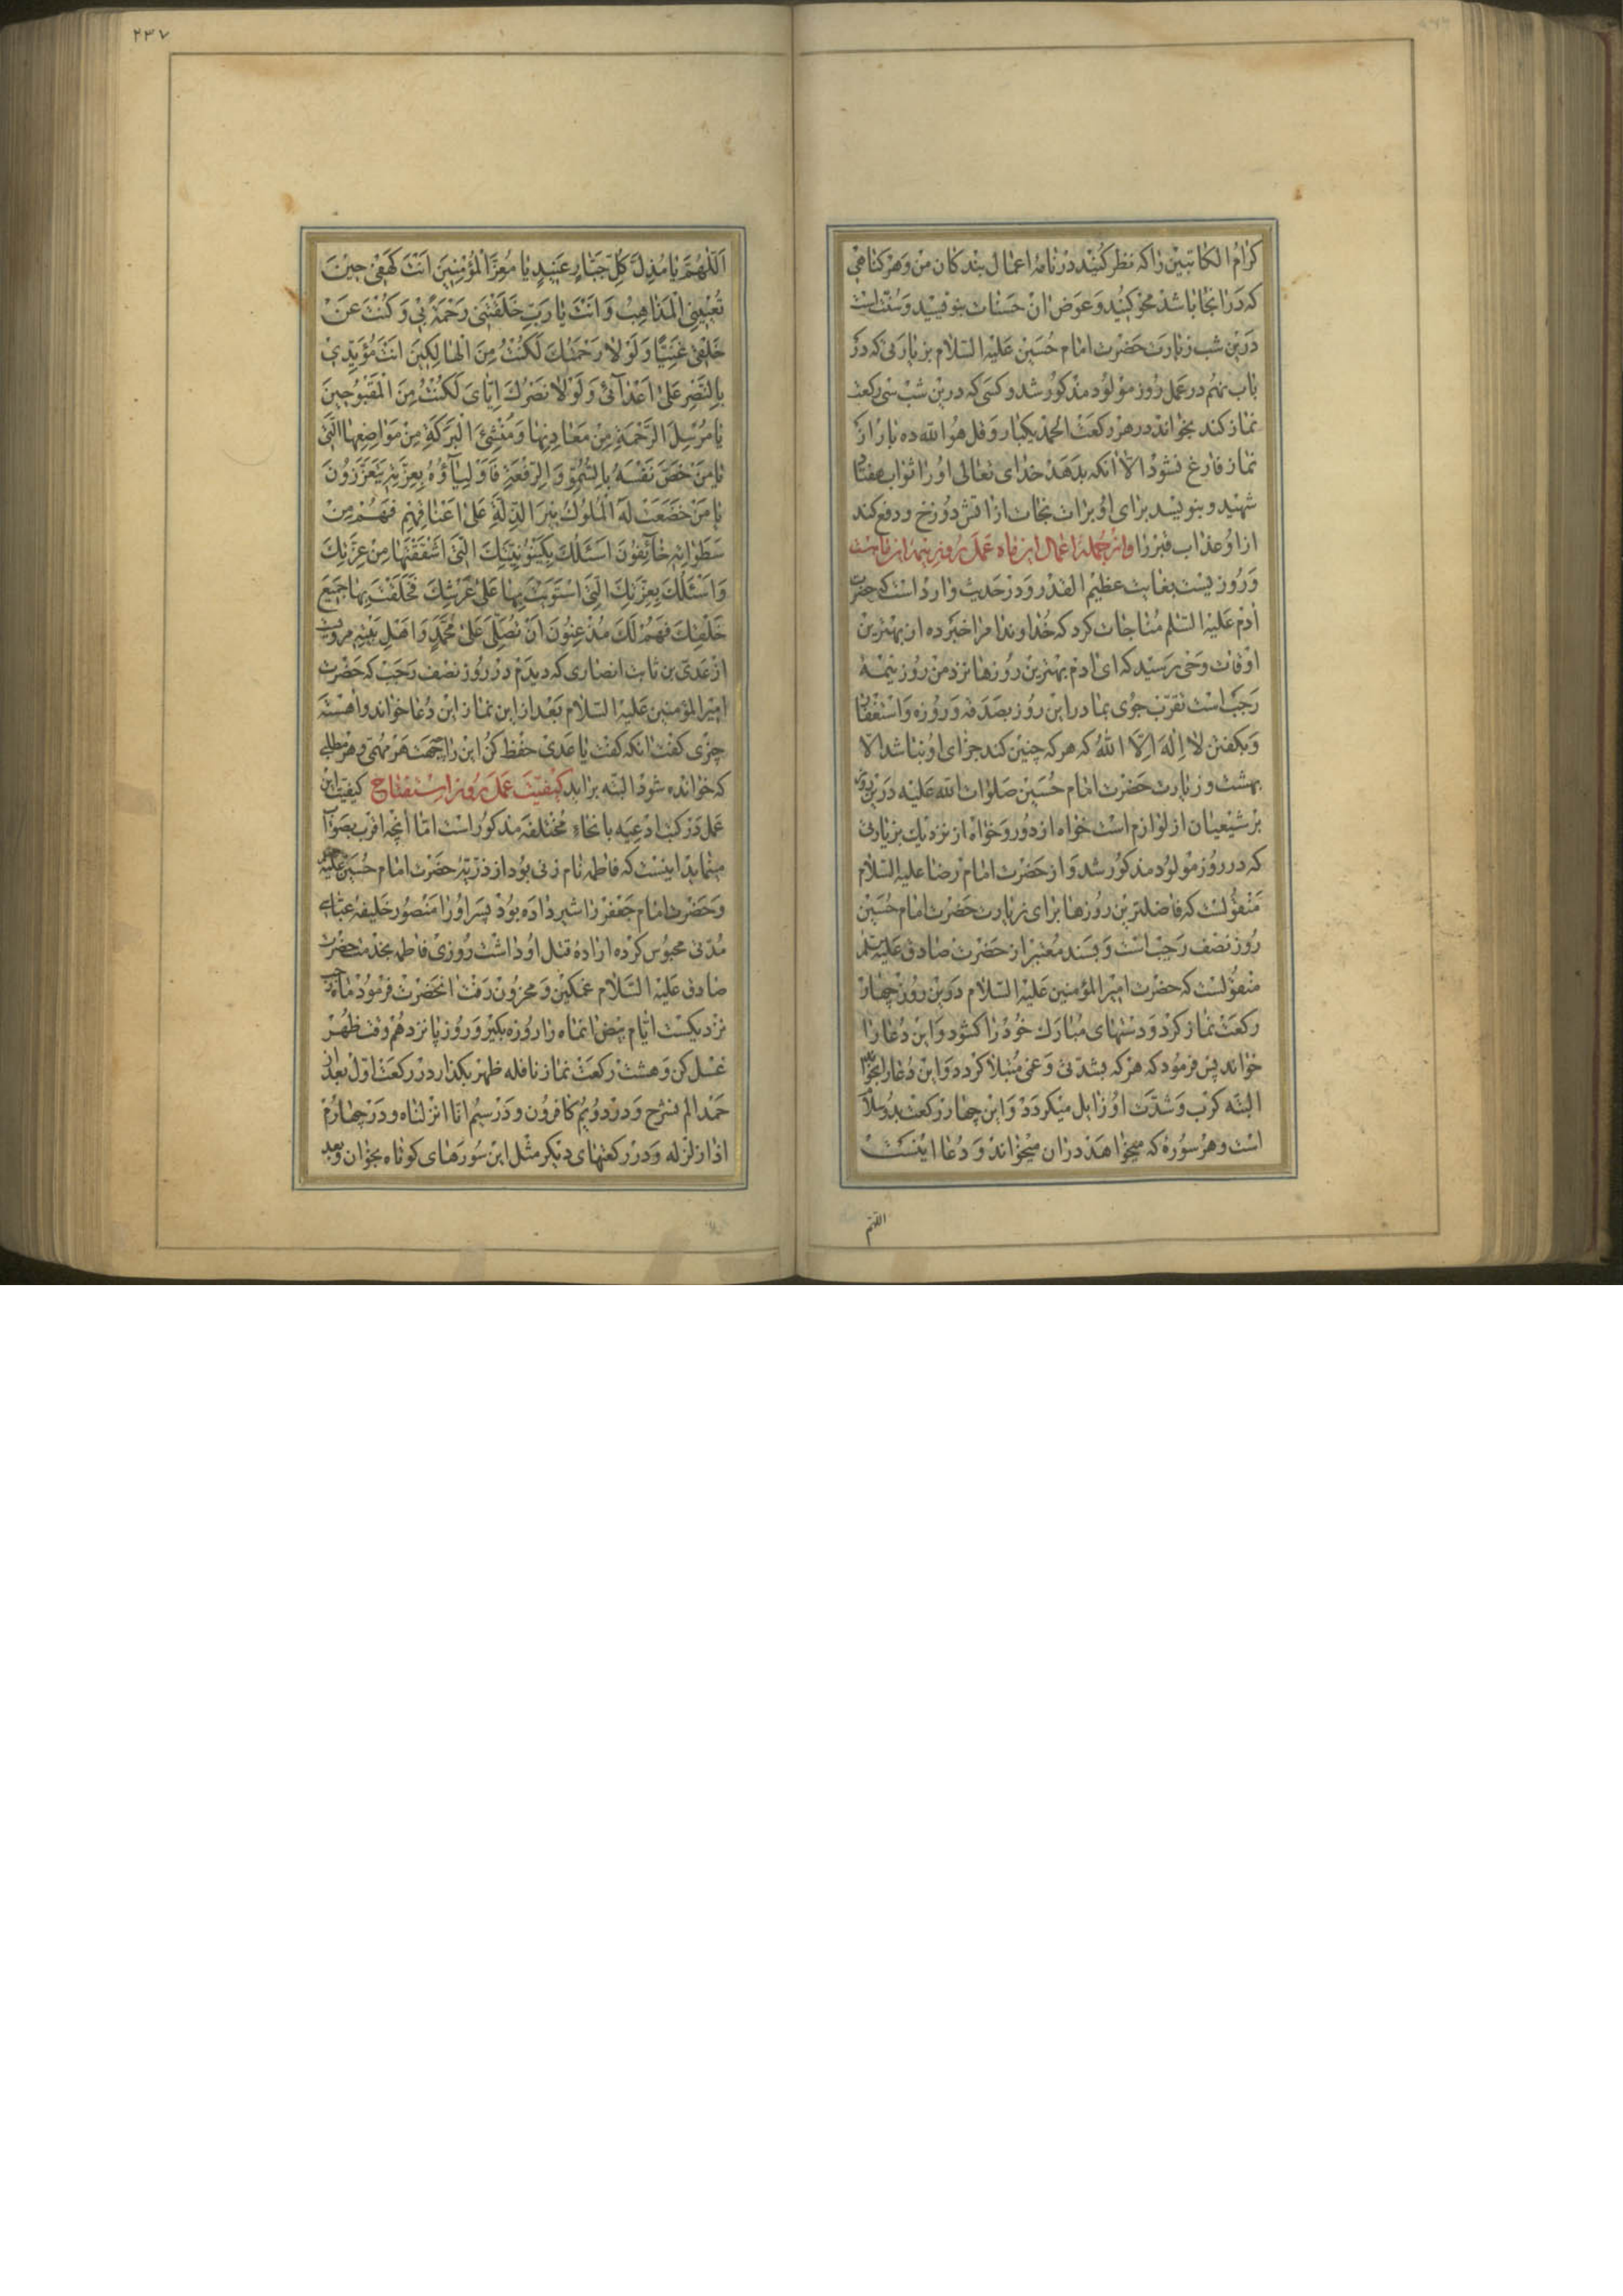 کرام الکاتبین را که نظر کنید در نامۀ اعمال بندکان من و هر کناهی
که در انجا باشد محو کنید و عوض ان حسنات بنویسید و سنت است
درین شب زیارت حضرت امام حسین علیه السلام بزیارتی که در
باب نهم در عمل روز مولود مذکور شد و کسی که درین شب سی رکعت
نماز کند بخواند در هر رکعت الحمد یکبار و قل هو الله ده بار از
نماز فارغ نشود الا انکه بدهد خدای تعالی او را ثواب هفتاد
شهید و بنویسد برای او برات نجات از اتش دوزخ و دفع کند
ازو عذاب قبر را و از جمله اعمال این ماه عمل روز نیمه این ماهست
و روزیست بغایت عظیم القدر و در حدیث وارد است که حضرت
آدم علیه السلم مناجات کرد که خداوندا مرا خبر ده از بهترین
اوقات وحی رسید که ای ادم بهترین روزها نزد من روز نیمۀ
رجب است تقرب جوی بما در این روز بصدقه و روزه و استغفار
و بکفتن لا اله الا الله که هر که چنین کند جزای او نباشد الا
بهشت و زیارت حضرت امام حسین صلوات الله علیه درین روز
بر شیعیان از لوازم است خواه از دور و خواه از نزدیک بزیارتی
که در روز مولود مذکور شد و از حضرت امام رضا علیه السلام
منقولست که فاضلترین روزها برای زیارت حضرت امام حسین
روز نصف رجب است و بسند معتبر از حضرت صادق علیه السلم
منقولست که حضرت امیر المؤمنین علیه السلام درین روز چهار
رکعت نماز کرد و دستهای مبارک خود را کشود و این دعا را
خواند پس فرمود که هر که بشدتی و غمی مبتلا کردد و این دعا را بخواند
البته کرب و شدت او زایل میکردد و این چهار رکعت بدو سلام
است و هر سوره که میخواهد در ان میخواند و دعا اینست
اللهم
۲۳۷
اللهم یا مذل کل جبار عنید یا معز المؤمنین انت کهفی حین
تعییني المذاهب و انت یا رب خلقتنی رحمة بی و کنت عن
خلقی غنیا و لولا رحمتک لکنت من الهالکین انت مؤیدی
بالنصر علی اعدآئی و لولا نصرک ایای لکنت من المقبوحین
یا مرسل الرحمة من معادنها و منشئ البرکة من مواضعها التی
یا من خص نفسه بالسمو و الرفعة فاولیاؤه بعزته یتعززون
یا من خضعت له الملوک بنیر الذلة علی اعناقهم فهم من
سطواته خائفون اسئلک بکینونیتک التی اشتققتها من عزتک
و اسئلک بعزتک التی استویت بها علی عرشک فخلقت بها جمیع
خلقک فهم لک مذعنون ان تصلی علی محمد و اهل بیته مرویست
از عدی بن ثابت انصاری که دیدم در روز نصف رجب که حضرت
امیر المؤمنین علیه السلام بعد از این نماز این دعا خواند و اهسته
چیزی کفت انکه کفت یا عدی حفظ کن این را بجهت هر مهمی و هر مطلبی
که خوانده شود البته براید کیفیت عمل روز استفتاح کیفیت این
عمل در کتب ادعیه بانحاء مختلفه مذکور است اما انچه اقرب بصواب
مینماید اینست که فاطمه نام زنی بود از ذریۀ حضرت امام حسین علیه
و حضرت امام جعفر را شیر داده بود پسر او را منصور خلیفۀ عباسی
مدتی محبوس کرده ارادۀ قتل او داشت روزی فاطمه بخدمت حضرت
صادق علیه السلام غمکین و محزون رفت انحضرت فرمود ماه رجب
نزدیکست ایام بیض انماه را روزه بکیر و روز پانزدهم وقت ظهر
غسل کن و هشت رکعت نماز نافله ظهر بکذار در رکعت اول بعد از
حمد الم نشرح و در دویم کافرون و در سیم انا انزلناه و در چهارم
اذا زلزله و در رکعتهای دیکر مثل این سورهای کوتاه بخوان و بعد